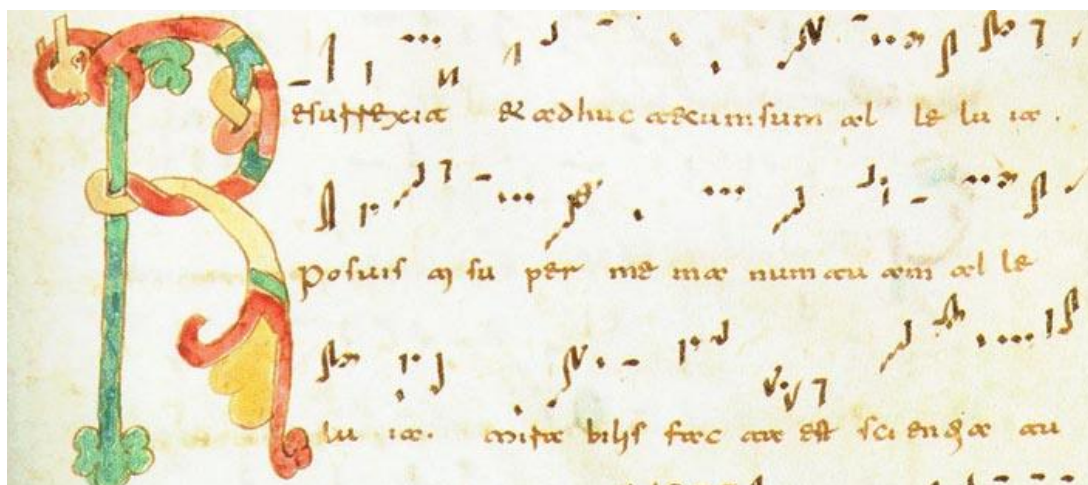 Resurrexi & adhuc tecum sum al le lu ia.
Posuis ti su per me ma num tu am al le
lu ia. mira bilis fac ta est sci entia tu